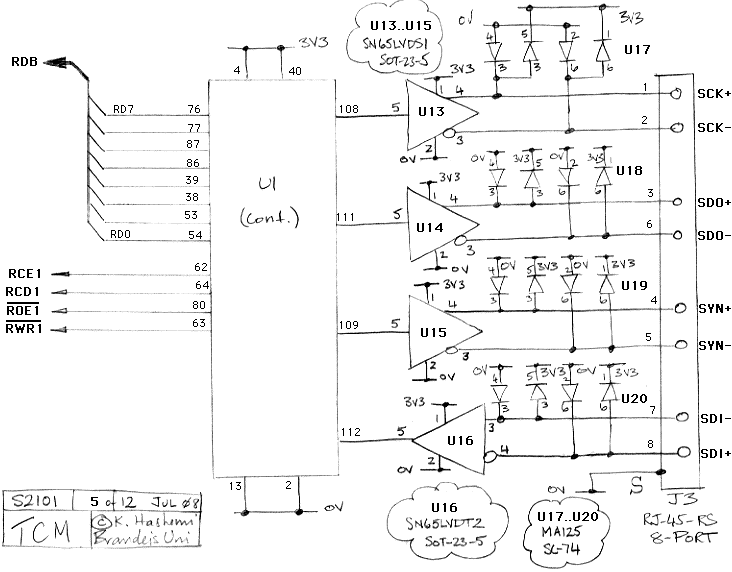 U13..U15
SN65LVDS1
SOT-23-5
0V
3V3
4
5
2
1
U17
3
3
6
6
RDB
3V3
4
40
3V3
1
4
1
SCK+
RD7
76
108
5
U13
3
2
SCK-
77
2
0V
87
0V
3V3
0V
3V3
U18
86
4
5
2
1
39
U1
3V3
3
3
6
6
38
(cont.)
1
4
3
SDO+
53
111
5
U14
RD0
54
3
6
SDO-
2
0V
RCE1
62
0V
3V3
0V
3V3
RCD1
64
3V3
4
5
2
1
U19
ROE1
80
1
3
3
6
6
RWR1
63
4
4
SYN+
109
5
U15
3
5
SYN-
2
0V
0V
3V3
0V
3V3
4
5
2
1
U20
3V3
3
3
6
6
1
3
7
SDI-
112
5
U16
4
8
SDI+
2
0V
13
2
0V
0V
S
J3
RJ-45-RS
8-PORT
U16
SN65LVDT2
SOT-23-5
U17..U20
MA125
SC-74
S2101
5 of 12 JUL 08
TCM
© K. Hashemi
Brandeis Uni